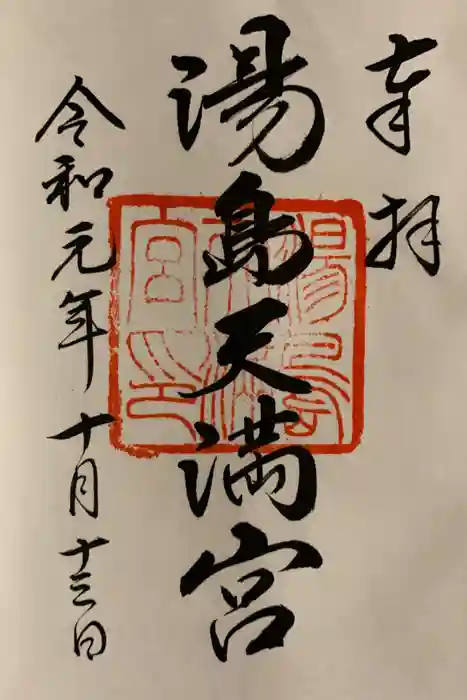 奉拝
湯島天満宮
令和元年十月十三日